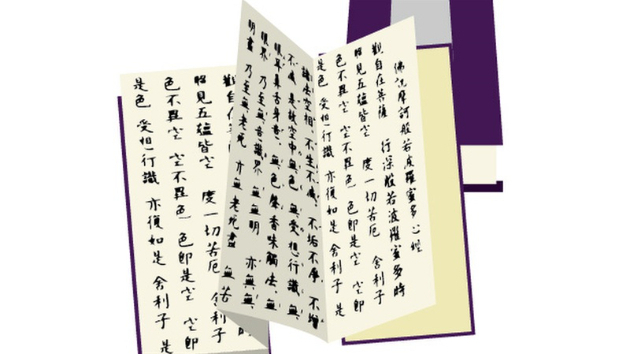 佛說摩訶般若波羅蜜多心經
觀自在菩薩 行深般若波羅蜜多時
照見五蘊皆空 度一切苦厄 舍利子
色不異空 空不異色 色即是空 空即
是色 受想行識 亦復如是 舍利子 是
諸法空相 不生不滅 不垢不淨 不增
不減 是故空中無色 無受想行識 無
眼耳鼻舌身意 無色聲香味觸法 無
眼界 乃至無意識界 無無明 亦無無
明盡 乃至無老死 亦無老死盡 無苦
觀自在
照見五蘊皆空 度一切苦厄 舍利子
色不異空 空不異色 色即是空 空即
是色 受想行識 亦復如是 舍利子 是